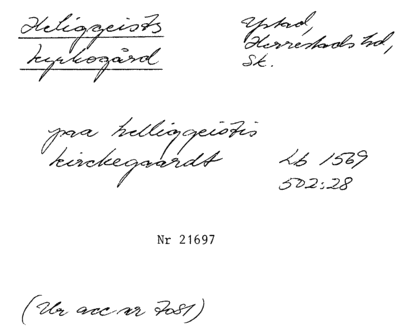 Heliggeists
kyrkogård
Ystad,
Herrestads hd,
Sk.
paa helliggeistis
kirckegaardt
Lb 1569
502:28
Nr 21697
(Ur acc nr 7081)